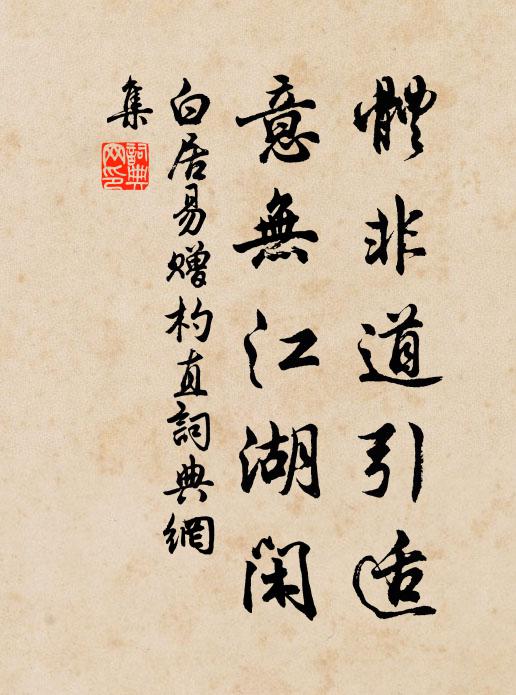 體非道引適
意無江湖閑
白居易贈杓直詞典網
集
詞典
网印